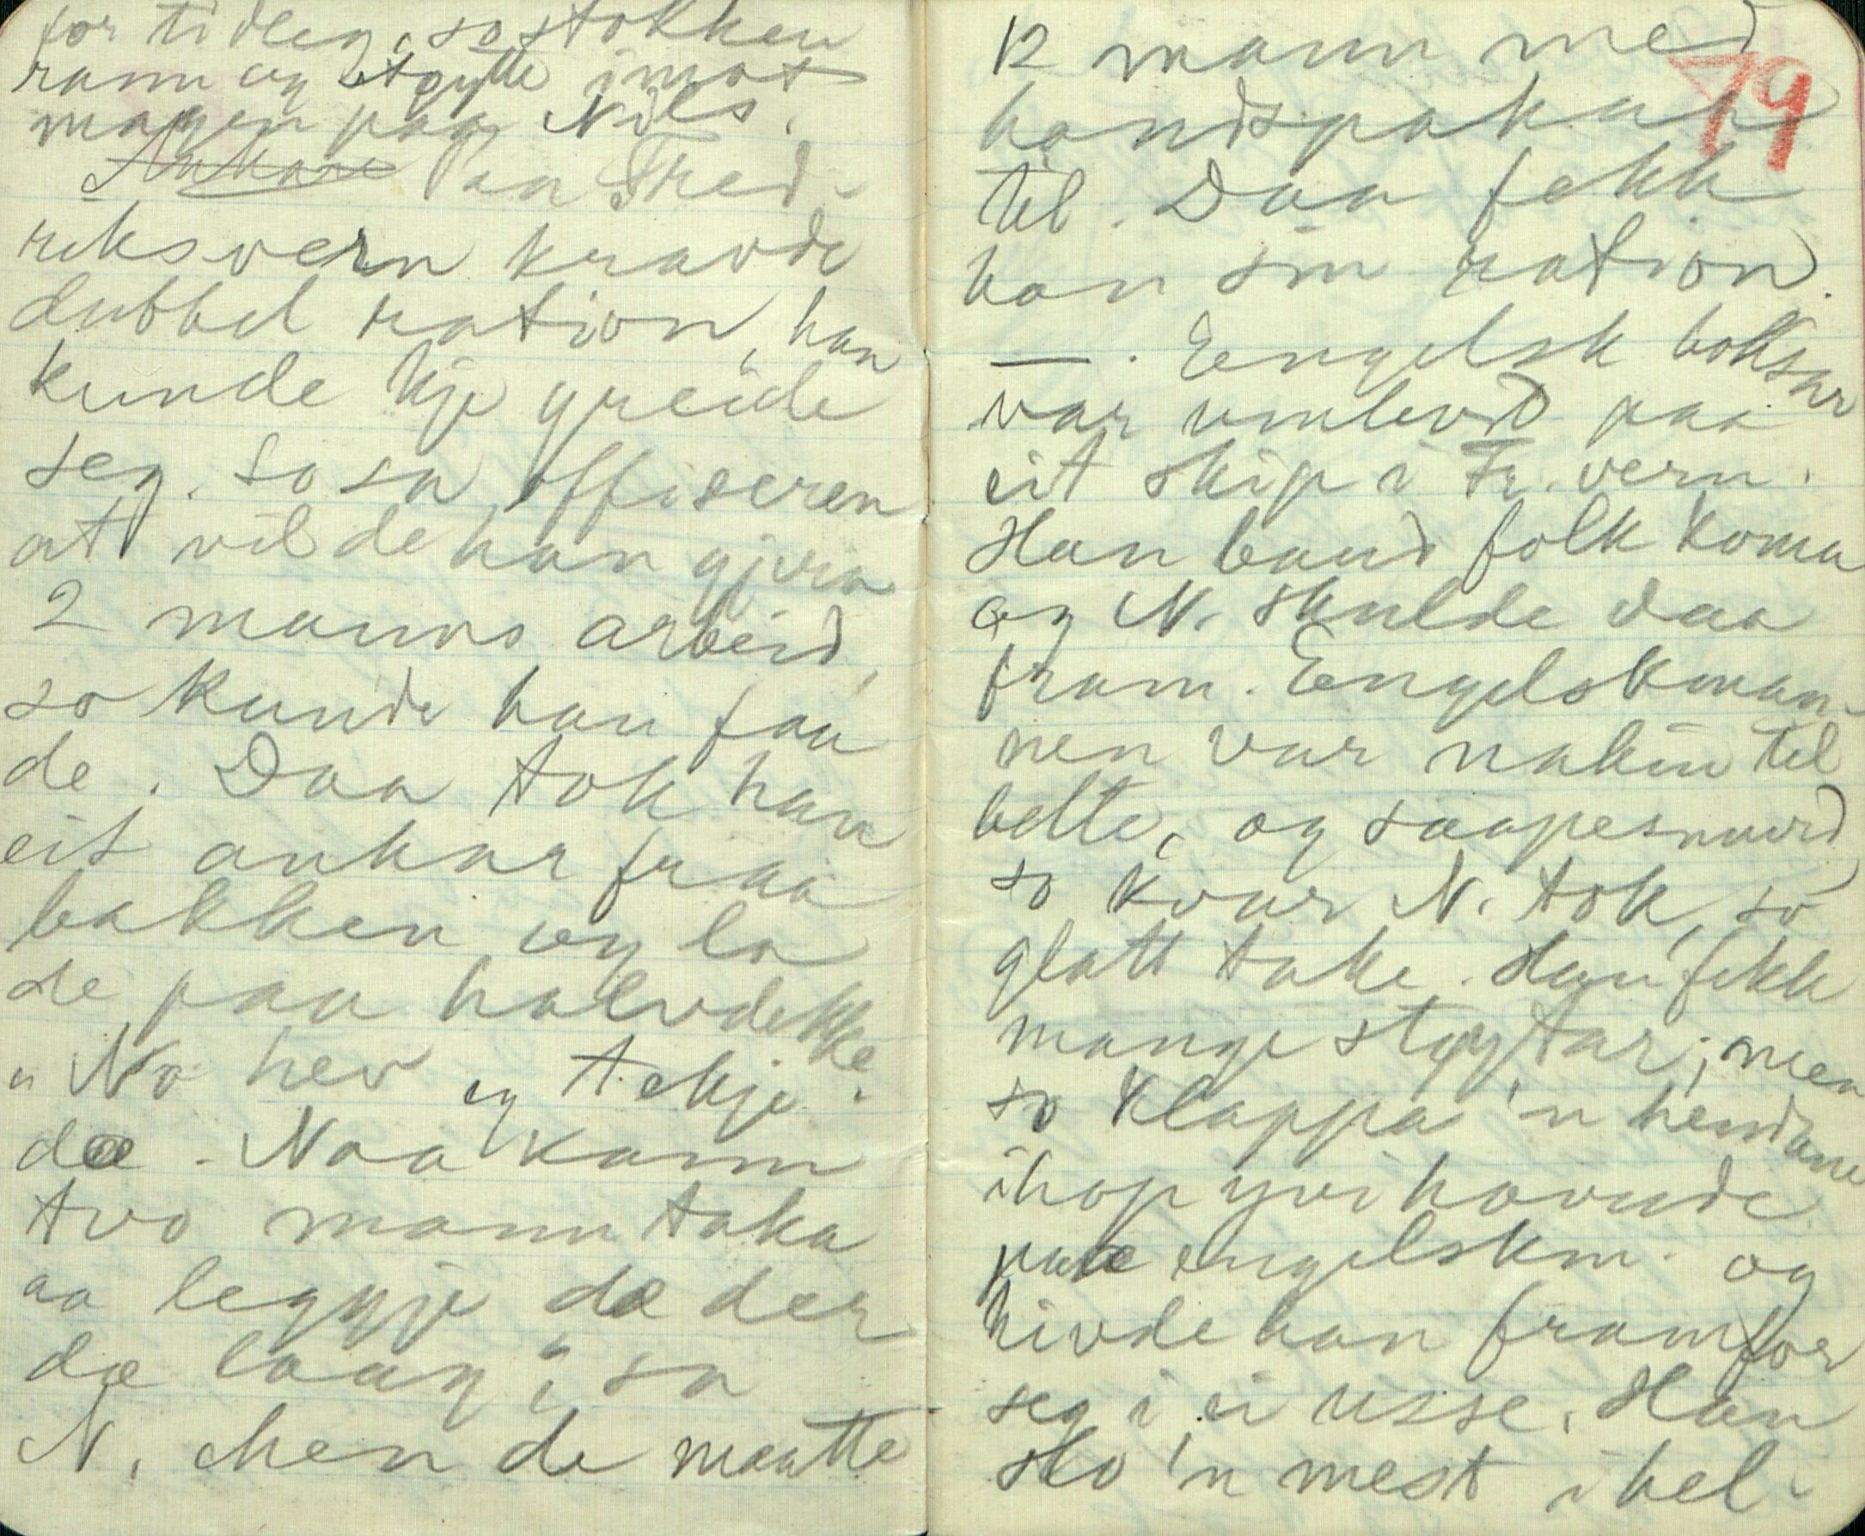 for tidleg, so stokken
rann og støytte imot
magen paa Nils.
Ankare Paa Fred-
riksvern kravde
dubbel ration, han
kunde kje greide
seg. So sa offiseren
at vilde han gjera
2 manns arbeid,
so kunde han faa
de. Daa tok han
eit ankar fraa
bakken og la
de paa halvdekke.
"No hev eg tekje
dæ. Naa kann
tvo mann taka
aa leggje dæ der
dæ laag", sa
N. Men de maatte
12 mann med
handspakar
til. Daa fekk
han sin ration.
—. Engelsk boksar
var umbord paa
eit skip i Fr.vern.
Han baud folk koma
og N. skulde daa
fram. Engelskman-
nen var nakin til
belte, og saapesmurd
so kvar N. tok, so
glatt take. Han fekk
mange støytar; men
so klappa 'n hendane
ihop yvi hovude
paa engelskm. og
hivde han framfor
seg i ei usse. Han
slo 'n mest i hel.
79